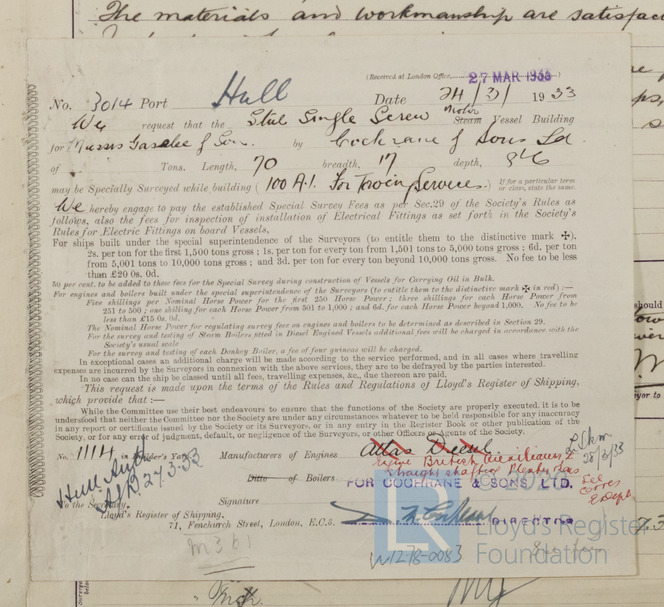 The materials and workmanship are satisfac
(Received at London Office, 27 MAR 1933 )
No. 3014 Port Hull Date 24/3/ 1933
We request that the Steel Single Screw Motor Steam Vessel Building
for Messrs Gaselee & Son. by Cochrane & Sons Ld.
of Tons. Length, 70 breadth, 17 depth, 8'6
may be Specially Surveyed while building ( 100 A.1. For Towing Services. ) If for a particular term or class, state the same.
We hereby engage to pay the established Special Survey Fees as per Sec. 29 of the Society's Rules as
follows, also the fees for inspection of installation of Electrical Fittings as set forth in the Society's
Rules for Electric Fittings on board Vessels.
For ships built under the special superintendence of the Surveyors (to entitle them to the distinctive mark ✠).
2s. per ton for the first 1,500 tons gross ; 1s. per ton for every ton from 1,501 tons to 5,000 tons gross ; 6d. per ton
from 5,001 tons to 10,000 tons gross ; and 3d. per ton for every ton beyond 10,000 tons gross. No fee to be less
than £20 0s. 0d.
50 per cent. to be added to these fees for the Special Survey during construction of Vessels for Carrying Oil in Bulk.
For engines and boilers built under the special superintendence of the Surveyors (to entitle them to the distinctive mark ✠ in red) :—
Five shillings per Nominal Horse Power for the first 250 Horse Power ; three shillings for each Horse Power from
251 to 500 ; one shilling for each Horse Power from 501 to 1,000 ; and 6d. for each Horse Power beyond 1,000. No fee to be
less than £15 0s. 0d.
The Nominal Horse Power for regulating survey fee on engines and boilers to be determined as described in Section 29.
For the survey and testing of Steam Boilers fitted in Diesel Engined Vessels additional fees will be charged in accordance with the
Society's usual scale
For the survey and testing of each Donkey Boiler, a fee of four guineas will be charged.
In exceptional cases an additional charge will be made according to the service performed, and in all cases where travelling
expenses are incurred by the Surveyors in connexion with the above services, they are to be defrayed by the parties interested.
In no case can the ship be classed until all fees, travelling expenses, &c., due thereon are paid.
This request is made upon the terms of the Rules and Regulations of Lloyd's Register of Shipping,
which provide that :—
While the Committee use their best endeavours to ensure that the functions of the Society are properly executed, it is to be
understood that neither the Committee nor the Society are under any circumstances whatever to be held responsible for any inaccuracy
in any report or certificate issued by the Society or its Surveyors, or in any entry in the Register Book or other publication of the
Society, or for any error of judgment, default, or negligence of the Surveyors, or other Officers or Agents of the Society.
No. 1114 in Builder's Yard. Manufacturers of Engines Atlas Diesel
Ditto of Boilers
FOR COCHRANE & SONS LTD.
28/3/33
Signature DIRECTOR
To the Secretary,
Lloyd's Register of Shipping,
71, Fenchurch Street, London, E.C.3.
Lloyd's Register
Foundation
m361
W1278-0083